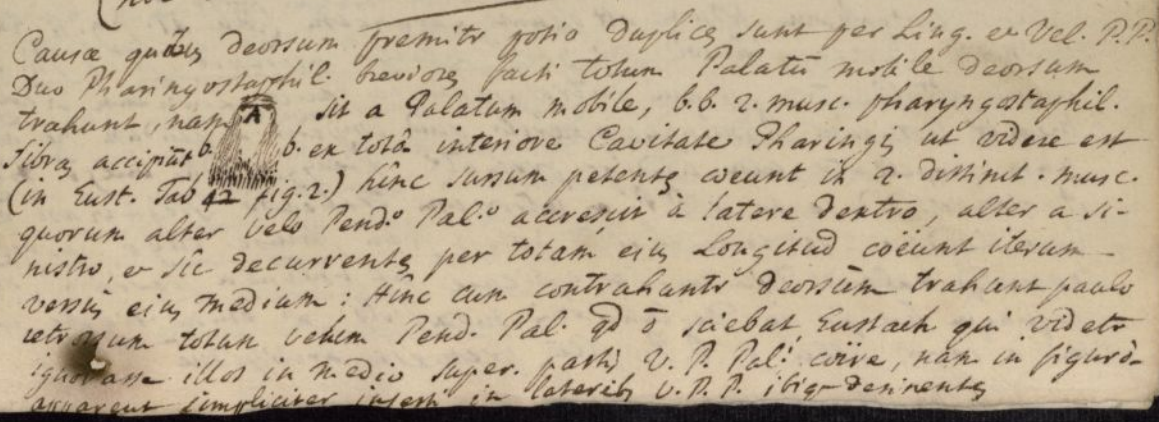 Causæ quibus deorsum premitr potio duplices sunt per Ling. et Vel. P.P.
Duo Pharingostaphil. breviores facti totum Palatū mobile deorsum
trahunt, nam A sit a Palatum mobile, b.b. 2. musc. pharyngostaphil.
fibras accipiūt b. b. ex totâ interiore Cavitate Pharingis ut videre est
(in Eust. Tab 42 fig. 2.) hinc sursum petentes coeunt in 2. distinct. musc.
quorum alter velo Pend.º Pal.º accrescit à latere dextro, alter a si-
nistro, et sic decurrentes per totam eius Longitud coëunt iterum
versus eius medium: Hinc cum contrahantr deorsum trahunt paulo
retrorsum totum velum Pend. Pal. qd ō sciebat Eustach qui videtr
ignorasse illos in medio super. partis V. P. Pal. coïre, nam in figurâ
apparent simpliciter inserti in lateribs V. P. P. ibiqe desinentes